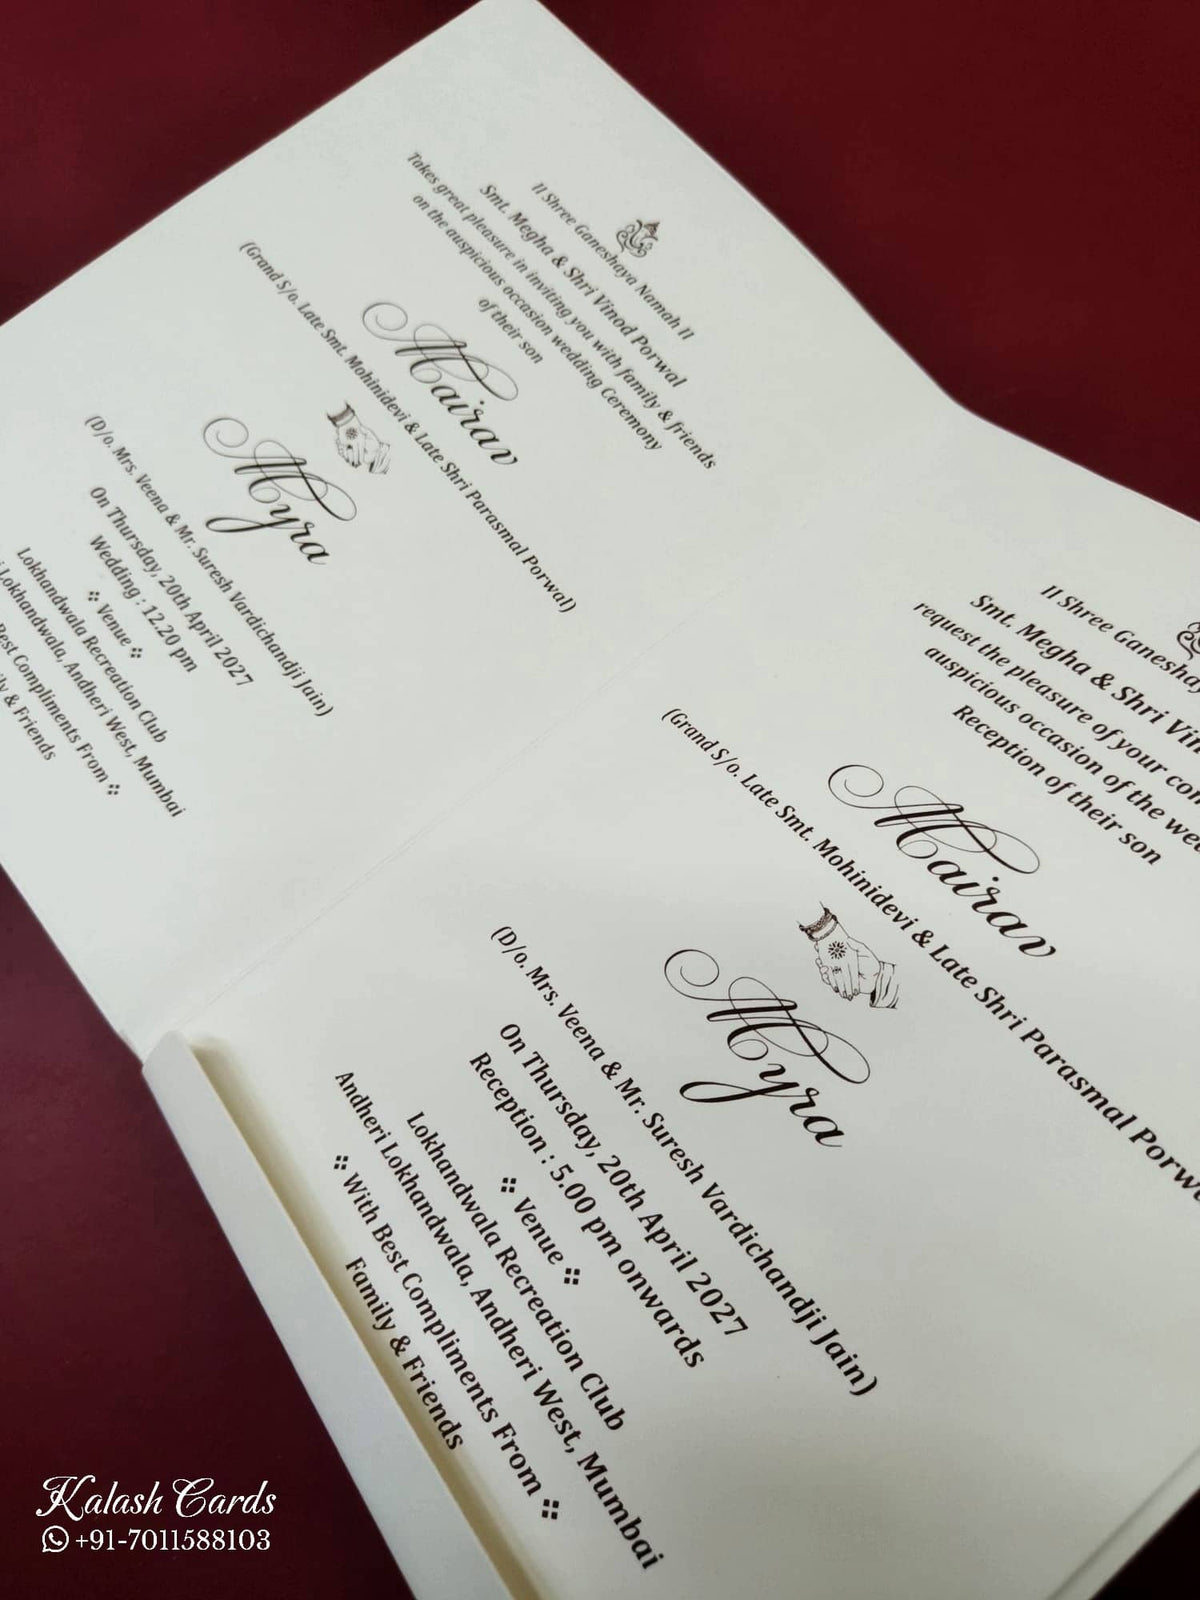 II Shree Ganeshaya Namah II
Smt. Megha & Shri Vinod Porwal
Takes great pleasure in inviting you with family & friends
on the auspicious occasion wedding Ceremony
of their son
Mairav
(Grand S/o. Late Smt. Mohinidevi & Late Shri Parasmal Porwal)
Myra
(D/o. Mrs. Veena & Mr. Suresh Vardichandji Jain)
On Thursday, 20th April 2027
Wedding : 12.20 pm
Venue
Lokhandwala Recreation Club
Lokhandwala, Andheri West, Mumbai
Best Compliments From
& Friends
II Shree
Smt. Megha & Shri
request the pleasure of your
auspicious occasion of the
Reception of their son
Mairav
(Grand S/o. Late Smt. Mohinidevi & Late Shri Parasmal
Myra
(D/o. Mrs. Veena & Mr. Suresh Vardichandji Jain)
On Thursday, 20th April 2027
Reception : 5.00 pm onwards
Venue
Lokhandwala Recreation Club
Andheri Lokhandwala, Andheri West, Mumbai
With Best Compliments From
Family & Friends
Kalash Cards
+91-7011588103